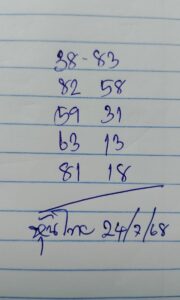 38-83
82 58
59 31
63 13
81 18
หุ้นไทย 24/7/68